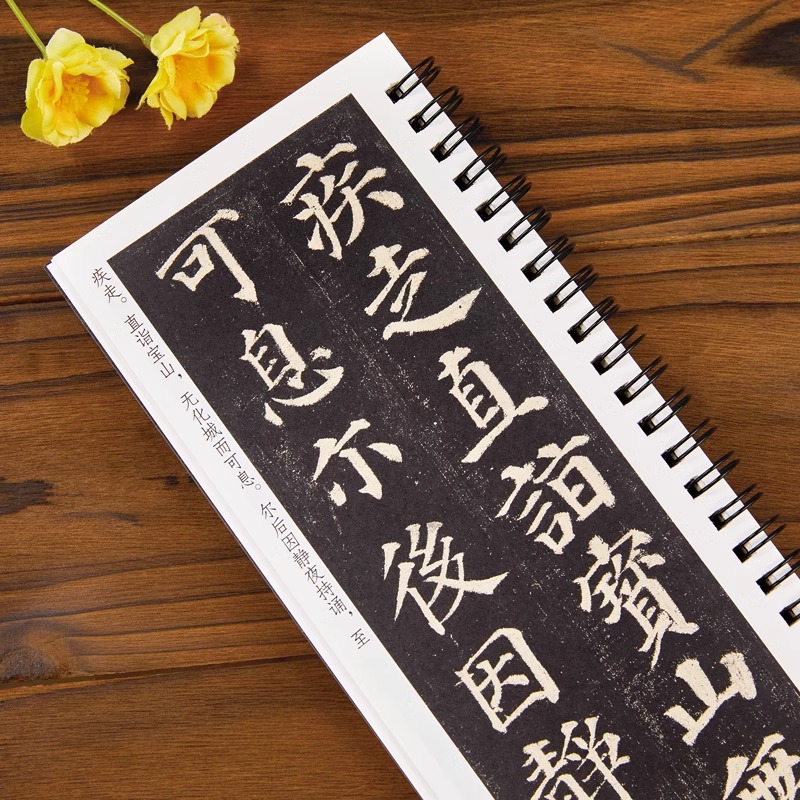 疾走直詣寶山無
可息尔後因靜
疾走。直诣宝山,无化城而可息。尔后因静夜持诵,至